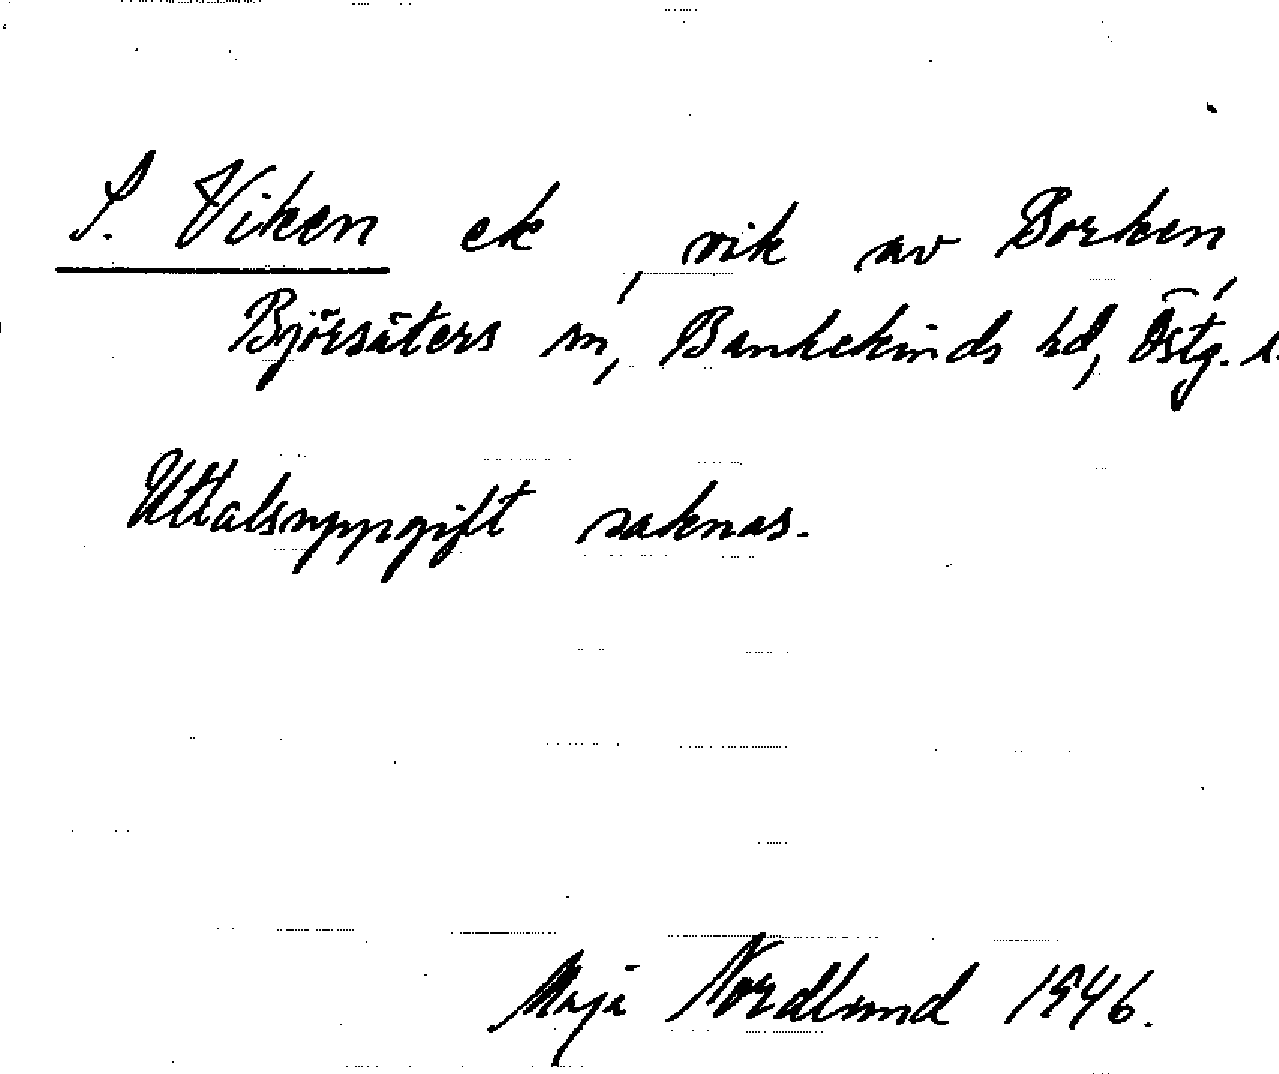 S. Viken ek, vik av Borken,
Björsäters sn, Bankekinds hd, Östg. l.
Uttalsuppgift saknas.
Maja Nordlund 1946.